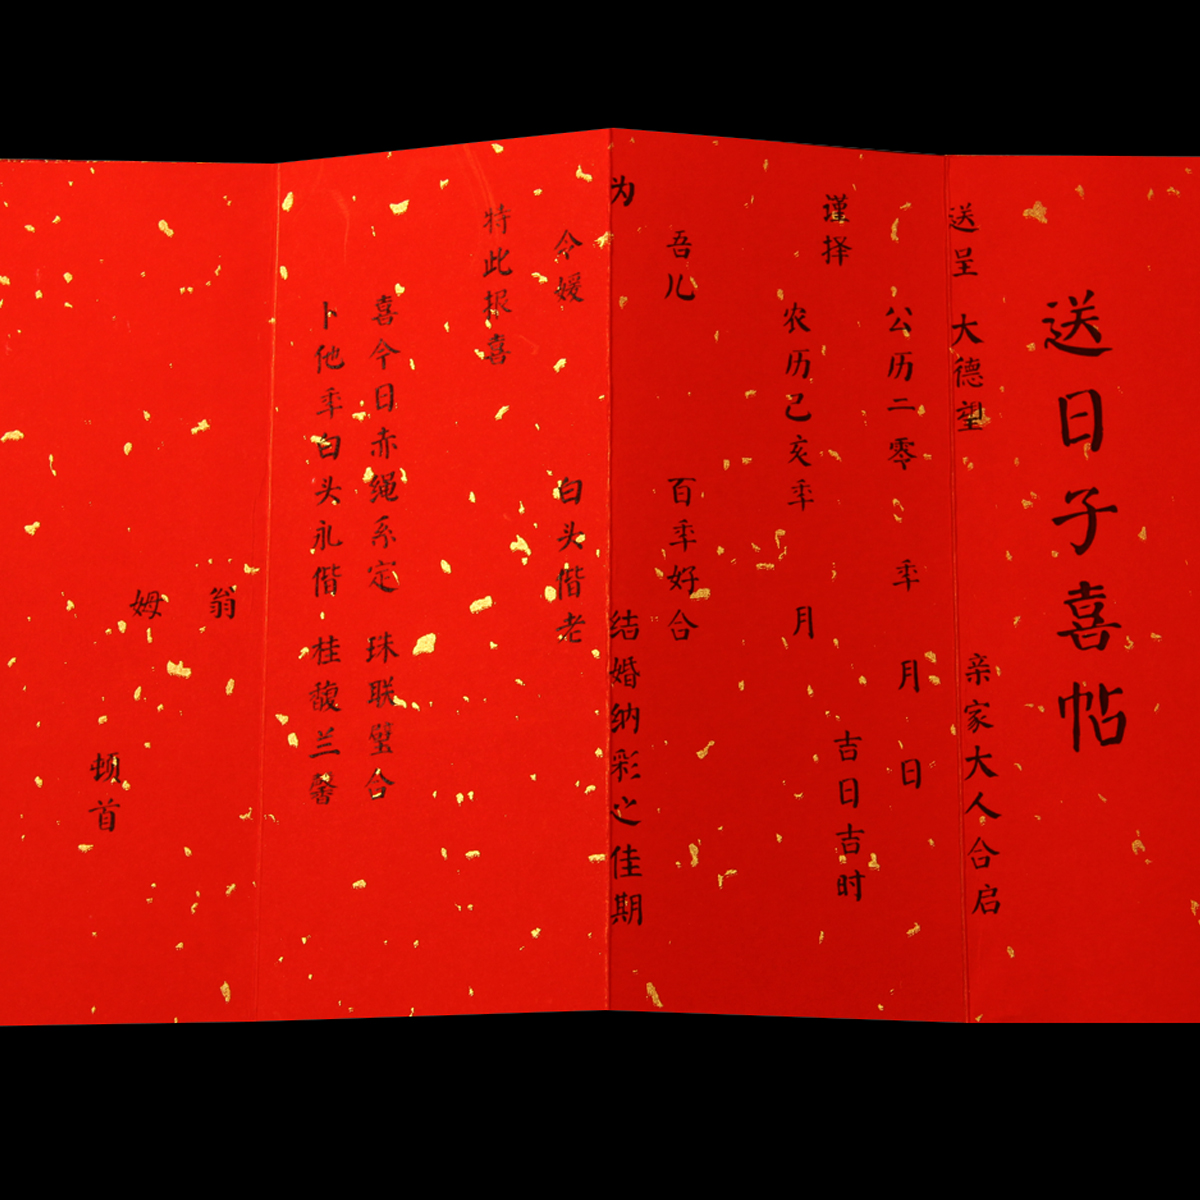 送日子喜帖
送呈 大德望 亲家大人合启
公历二零 年 月 日
谨择 吉日吉时
农历己亥年 月
吾儿 百年好合
为 结婚纳彩之佳期
令媛 白头偕老
特此报喜
喜今日赤绳系定 珠联璧合
卜他年白头永偕 桂馥兰馨
翁
姆
顿首